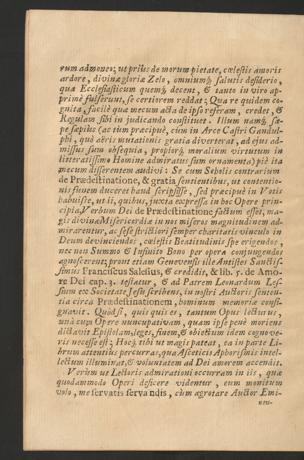 rum admoneor; ut prius de morum pietate, cœlestis amoris
ardore, divinæ gloriæ Zelo, omniumq; salutis desiderio,
quæ Ecclesiasticum quemq; decent, & tanto in viro ap-
primè fulserunt, se certiorem reddat; Qua re quidem co-
gnita, facilè quæ mecum acta de ipso referam, credet, &
Regulam sibi in judicando constituet. Illum namq; sæ-
pe sæpius (ac tum præcipuè, cùm in Arce Castri Gandul-
phi, quò aëris mutationis gratia diverterat, ad ejus ad-
missus sum obsequia, propter moralium virtutum in
litteratissimo Homine admiratus sum ornamenta) piè ita
mecum disserentem audivi: Se cum Scholis contrarium
de Prædestinatione, & gratia sentientibus, ut contentio-
nis funem duceret haud scripsisse, sed præcipuè in Votis
habuisse, ut ii, quibus, juxta expressa in hoc Opere prin-
cipia, Verbum Dei de Prædestinatione satisum esset, ma-
gis divinæ Misericordiæ in nos miseros magnitudinem ad-
mirarentur, ac sese strictiori semper charitatis vinculo in
Deum devinciendos, cœlestis Beatitudinis spe erigendos,
nec non Summo & Infinito Bono per opera conjungendos
agnoscerent; prout etiam Genevensis ille Antistes Sanctis-
simus Franciscus Salesius, & credidit, & lib. 3. de Amo-
re Dei cap. 5. testatur, & ad Patrem Leonardum Les-
sium ex Societate Jesu scribens, in nostri Auctoris senten-
tia circa Prædestinationem, hominum memoria consi-
gnavit. Quòd si, quis quis es, tantum Opus lecturus,
unà cum Opere nuncupativam, quam ipse penè moriens
dictavit Epistolam, leges, finem, & obiectum idem cognove-
ris necesse est; Hocq; tibi ut magis pateat, ea in parte Li-
brum attentiùs percurras, qua Asceticis Aphorismis intel-
lectum illuminat, & voluntatem ad Dei amorem accendit.
Verùm ut Lectoris admirationi occurram in iis, quæ
quodammodo Operi deficere videntur, eum monitum
volo, me servatis servandis, cùm ægrotare Auctor Emi-
nen-